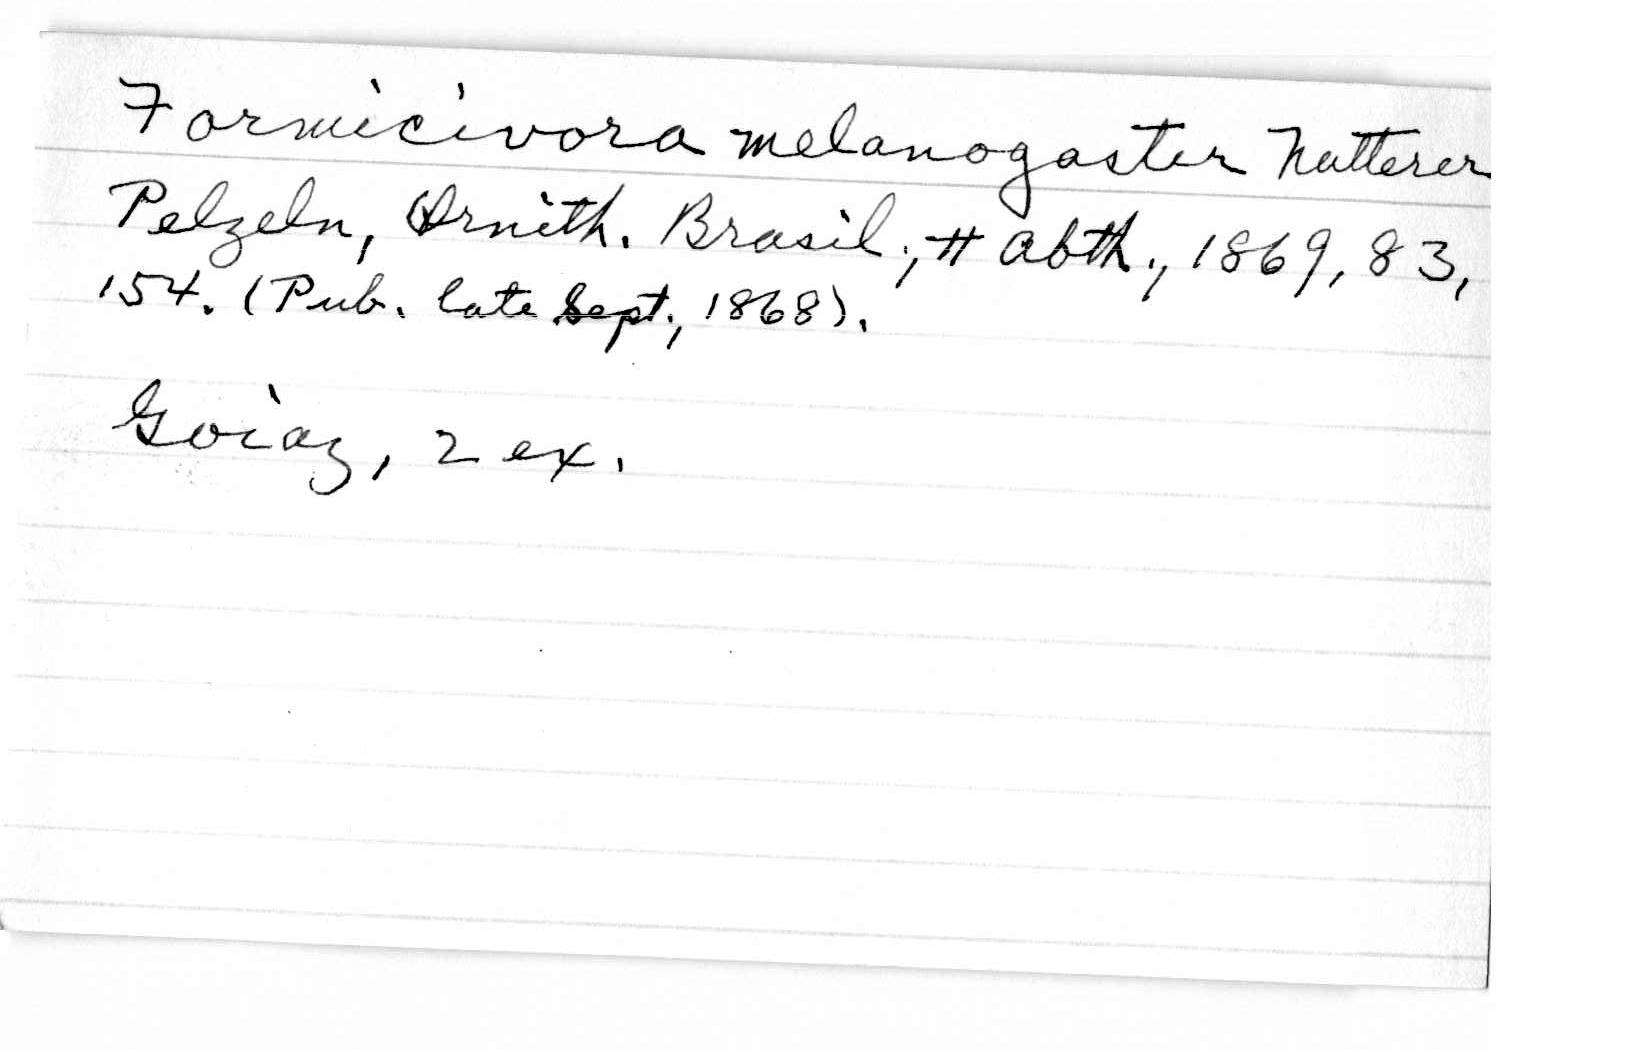 Formicivora melanogaster Natterer
Pelzeln, Ornith. Brasil., II Abth., 1869, 83,
154. (Pub. late Sept., 1868).
Goiaz, 2 ex.